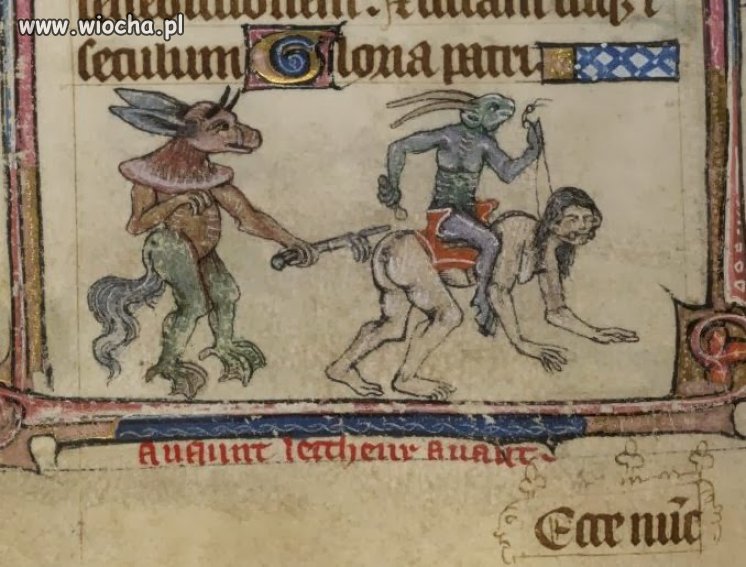 www.wiocha.pl
seculum Gloria patri
Auaunt leccheur auant
Ecce nūc